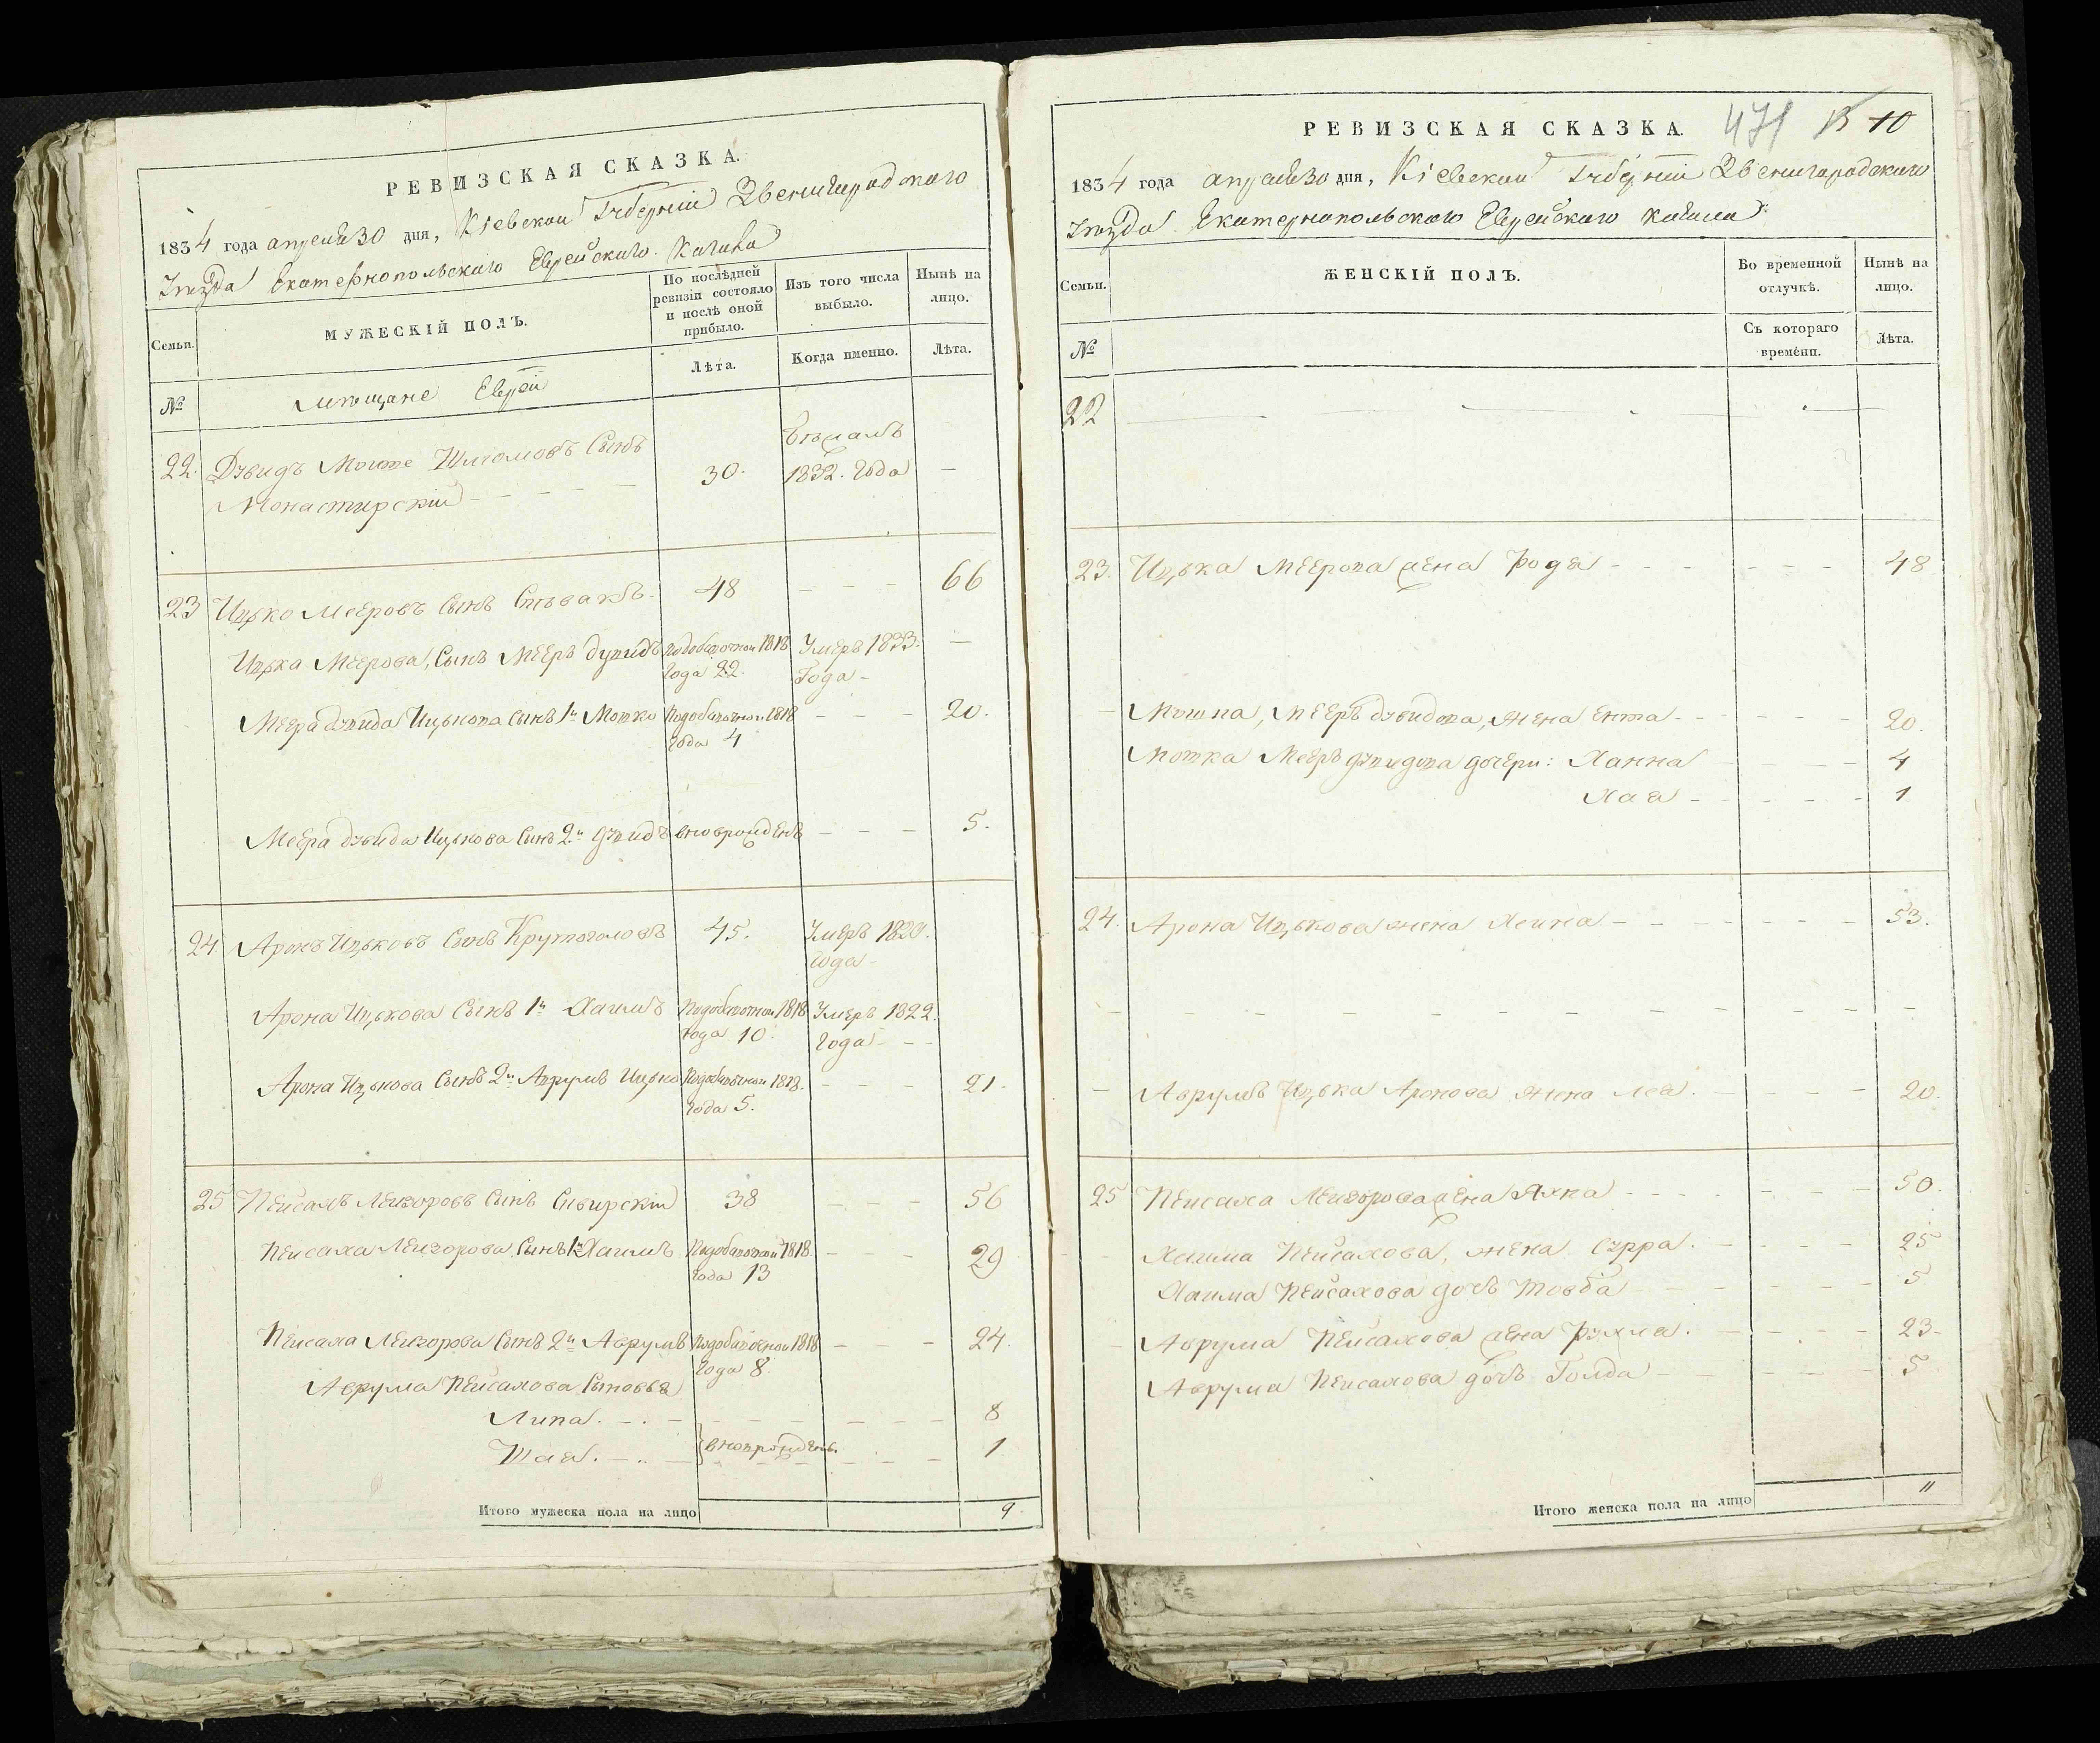 РЕВИЗСКАЯ СКАЗКА.
1834 года апреля 30 дня, Кіевской Губерніи Звенигородского
Уѣзда Екатеринопольского Еврейского Кагала
Семьи.
МУЖЕСКІЙ ПОЛЪ.
По послѣдней ревизіи состояло и послѣ оной прибыло.
Изъ того числа выбыло.
Нынѣ на лицо.
№
Лѣта.
Когда именно.
Лѣта.
Мѣщане Евреи
22. Дувидъ Мошке Шлиомовъ Сынъ 30. Бѣжалъ
Монастирскій - - - - - 1832. Года -
23 Ицько Мееровъ Сынъ Спѣвакъ - 48 - - - 66
Ицька Меерова, Сынъ Мееръ Дувидъ 1818 Умеръ 1833. -
Года 22. Года -
Меера Дувида Ицькова Сынъ 1й Мотко 1818 - - - 20.
Года 4
Меера Дувида Ицькова Сынъ 2й Дувидъ вноврожденъ - - - 5.
24 Аронъ Ицьковъ Сынъ Крутоголовъ 45. Умеръ
Года -
Арона Ицькова Сынъ 1й Хаимъ 1818 Умеръ 1822.
Года 10. Года - - -
Арона Ицькова Сынъ 2й Аврумъ Ицько 1818. - - - 21.
Года 5.
25 Пейсахъ Лейзоровъ Сынъ Сибирскій 38 - - - 56
Пейсаха Лейзорова Сынъ 1й Хаимъ 1818 - - - 29
Года 13
Пейсаха Лейзорова Сынъ 2й Аврумъ 1818 - - - 24.
Года 8.
Аврума Пейсахова Сыновья
Липа. - . - - - - 8
Шая. - .. - вноврожденъ. 1
Итого мужеска пола на лицо 9.
РЕВИЗСКАЯ СКАЗКА. 471 10
1834 года апреля 30 дня, Кіевской Губерніи Звенигородского
Уѣзда Екатеринопольского Еврейского Кагала
Семьи.
ЖЕНСКІЙ ПОЛЪ.
Во временной отлучкѣ.
Нынѣ на лицо.
№
Съ котораго времени.
Лѣта.
22
23. Ицька Меерова жена Рода - - - - 48
Мотка, Мееръ Дувидова, жена Ента - - - 20.
Мотка Мееръ Дувидова дочери: Ханна - - - 4
Хая - - - 1
24. Арона Ицькова жена - - - 53.
Аврумъ Ицька Аронова жена Лея. - - - 20.
25 Пейсаха Лейзорова жена Яхна - - - 50.
Хаима Пейсахова, жена Сурра. - - - 25
Хаима Пейсахова дочь Товба - - - 5
Аврума Пейсахова жена Рухля. - - - 23.
Аврума Пейсахова дочь Голда - - - 5
Итого женска пола на лицо 11